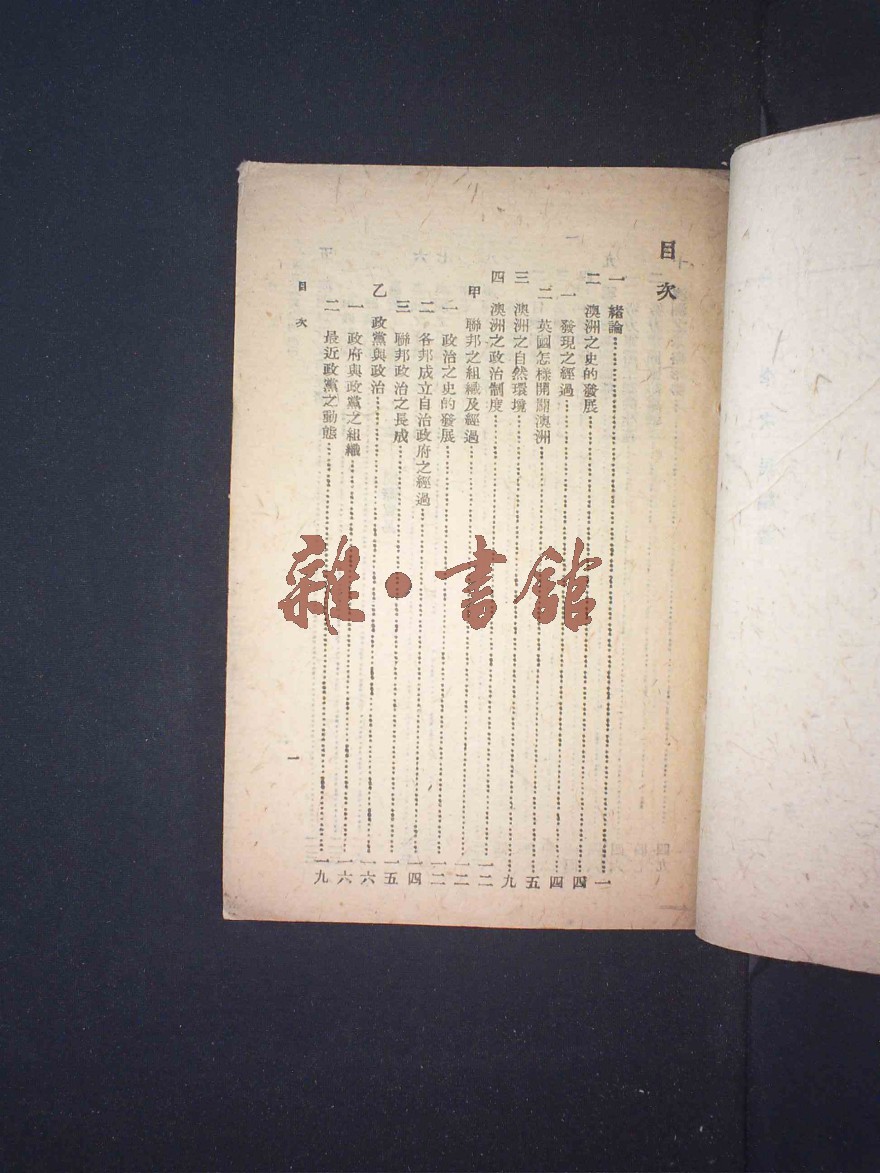 目次
一 緒論……一
二 澳洲之史的發展……四
一 發現之經過……四
二 英國怎樣開闢澳洲……五
三 澳洲之自然環境……九
四 澳洲之政治制度……一二
甲 聯邦之組織及經過……一二
一 政治之史的發展……一二
二 各邦成立自治政府之經過……一四
三 聯邦政治之長成……一五
乙 政黨與政治……一六
一 政府與政黨之組織……一六
二 最近政黨之動態……一九
目次
一
雜·書館